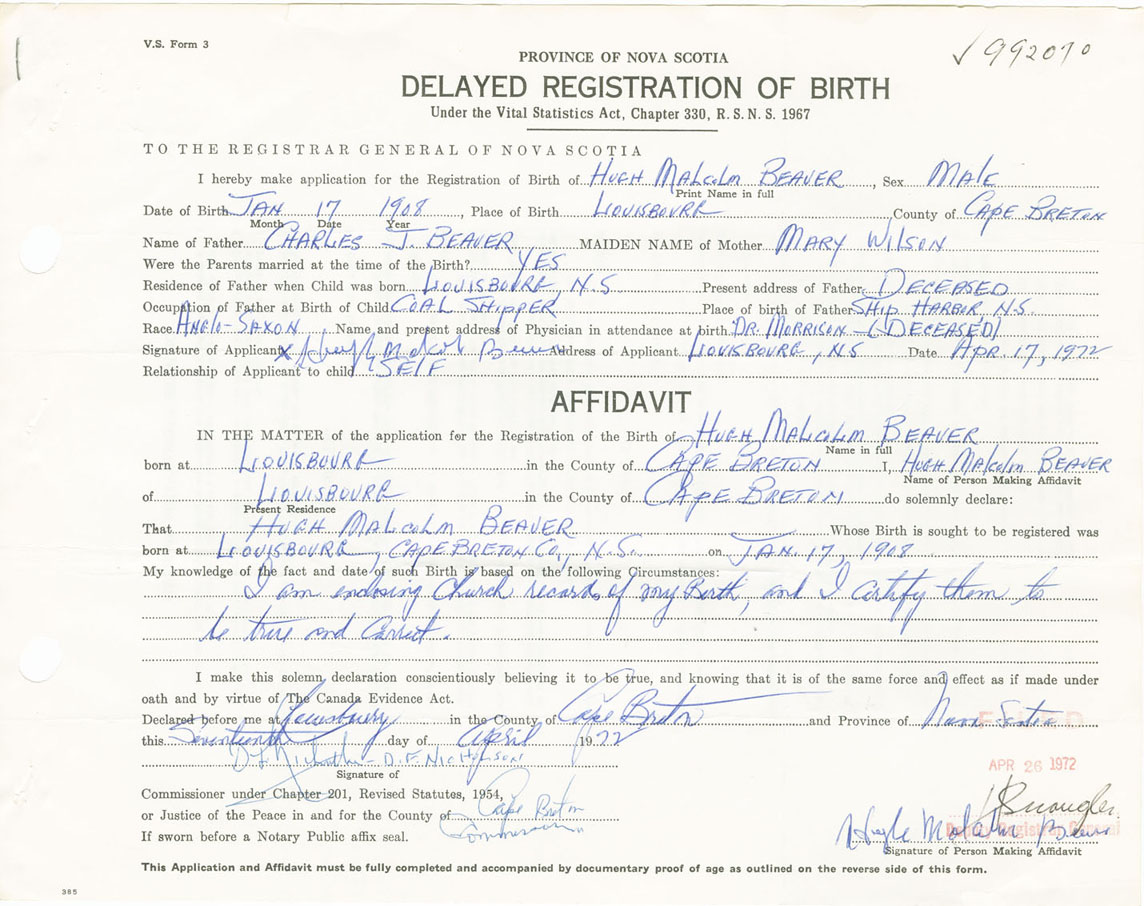 V.S. Form 3
992070
PROVINCE OF NOVA SCOTIA
DELAYED REGISTRATION OF BIRTH
Under the Vital Statistics Act, Chapter 330, R. S. N. S. 1967
TO THE REGISTRAR GENERAL OF NOVA SCOTIA
I hereby make application for the Registration of Birth of HUGH MALCOLM BEAVER, Sex MALE
Print Name in full
Date of Birth JAN 17 1908, Place of Birth LOUISBOURG County of CAPE BRETON
Month Date Year
Name of Father CHARLES J. BEAVER MAIDEN NAME of Mother MARY WILSON
Were the Parents married at the time of the Birth? YES
Residence of Father when Child was born LOUISBOURG, N.S. Present address of Father DECEASED
Occupation of Father at Birth of Child COAL SHIPPER Place of birth of Father SHIP HARBOR, N.S.
Race ANGLO-SAXON Name and present address of Physician in attendance at birth DR. MORRISON - (DECEASED)
Signature of Applicant x Hugh Malcolm Beaver Address of Applicant LOUISBOURG, N.S Date APR. 17, 1972
Relationship of Applicant to child SELF
AFFIDAVIT
IN THE MATTER of the application for the Registration of the Birth of HUGH MALCOLM BEAVER
Name in full
born at LOUISBOURG in the County of CAPE BRETON I, HUGH MALCOLM BEAVER
Name of Person Making Affidavit
of LOUISBOURG in the County of CAPE BRETON do solemnly declare:
Present Residence
That HUGH MALCOLM BEAVER Whose Birth is sought to be registered was
born at LOUISBOURG, CAPE BRETON CO., N.S. on JAN. 17, 1908
My knowledge of the fact and date of such Birth is based on the following Circumstances:
I am enclosing Church records of my Birth, and I certify them to
be true and Correct.
I make this solemn declaration conscientiously believing it to be true, and knowing that it is of the same force and effect as if made under
oath and by virtue of The Canada Evidence Act.
Declared before me at in the County of Cape Breton and Province of Nova Scotia
this Seventeenth day of April 1972
D.F. NICHOLSON
Signature of
APR 26 1972
Commissioner under Chapter 201, Revised Statutes, 1954,
or Justice of the Peace in and for the County of Cape Breton
If sworn before a Notary Public affix seal.
Deputy Registrar General
Hugh Malcolm Beaver
Signature of Person Making Affidavit
This Application and Affidavit must be fully completed and accompanied by documentary proof of age as outlined on the reverse side of this form.
385